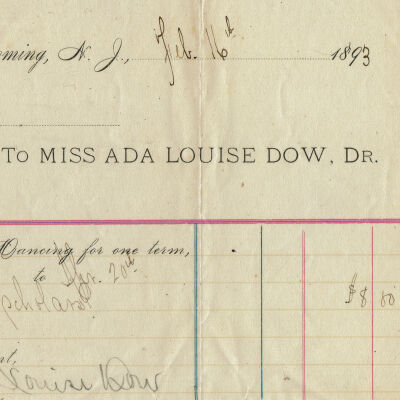 oming, N. J., Feb. 16th 1893
To MISS ADA LOUISE DOW, Dr.
Dancing for one term,
to Apr. 20th
scholars $8 00
nt,
Louise Dow